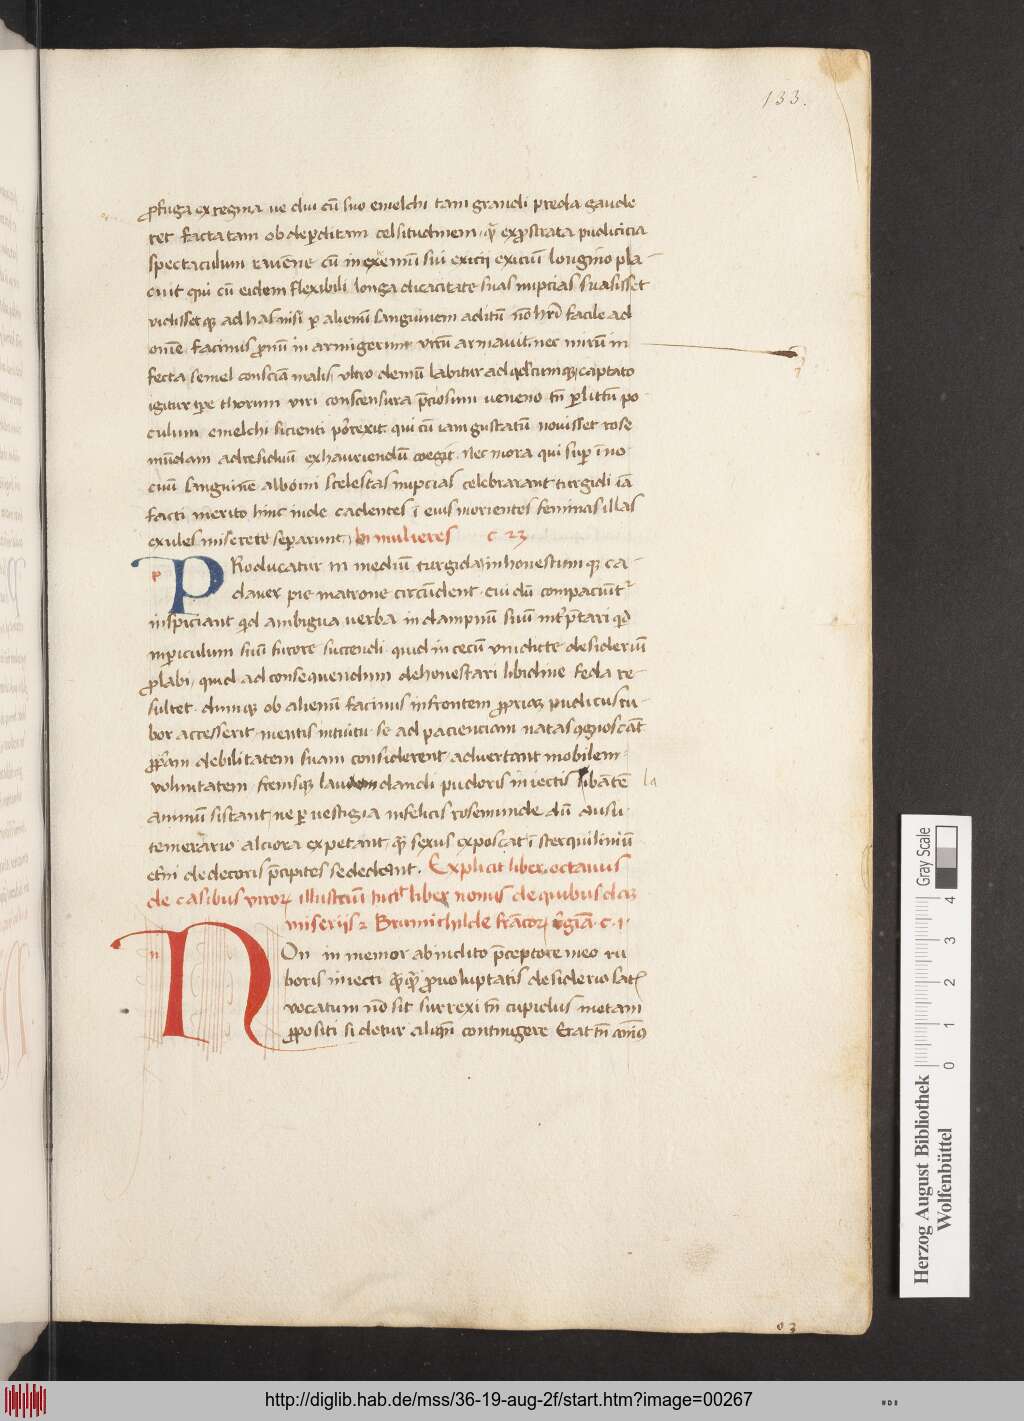 133.
ꝓfuga ex regina ue diu cũ suo emelchi tam grandi preda gaude
ret facta tam ob deperditam celsitudinem, qͣ exprostrata pudicicia
spectaculum rauẽne cũ in exemũ sui exicij exiciũ longino pla-
cuit qui cũ eidem flexibili longa dicacitate suas nupcias suasisset
vidissetqꝫ ad has nisi ꝑ alienũ sanguinem aditũ nõ hr̃i facile ad
om̃e facinus ꝓnũ in armigerum virũ armauit nec mirũ in
fecta semel consciã malis, vltro demũ labitur ad qđcumqꝫ captato
igitur tꝑe thorum viri conscensura p̃ciosum ueneno tñ ꝑlittũ po
culum emelchi sicienti porexit qui cũ iam gustatũ nouisset rose
mũdam ad residuũ exhauriendũ coegit. Nec mora qui suꝑ ĩno
cuũ sanguine alboini scelestas nupcias celebrarant turgidi iã
facti merito hinc inde cadentes ĩ eius morientes feminas illas
exules miserere separunt, In mulieres c 23
PRoducatur in mediũ turgida, inhonestumqꝫ ca-
dauer pie matrone circũdent. cui dũ compaciunt᷑
inspiciant qđ ambigua uerba in dampnũ suũ int̃p̃tari qđ
in periculum suũ furore succendi. quid in cecũ uindicte desideriũ
ꝓlabi, quid ad consequendum dehonestari libidine feda re-
sultet. dumqꝫ ob alienũ facinus in frontem ꝓpriaꝫ pudicus ru-
bor accesserit mentis intuitu se ad pacienciam natas ꝯgnoscãt
ꝓpr̃am debilitatem suam considerent aduertant mobilem
voluntatem, frenisqꝫ laudandi pudoris iniectis libãtẽ la
animũ sistant, ne ꝑ uestigia infelicis rosemunde dũ ausu
temerario alciora expetant, qͣꝫ sexus exposcat ĩ sterquiliniũ
et̃ni dedecoris p̃cipites se dedcant. Explicit liber octauus
de casibus viroꝝ illustriũ Incip̃t liber nonus de quibusdaꝫ
miserijs ⁊ Brunichilde frãcoꝝ r̃giã. c. 1.
NOn in memor ab inclito p̃ceptore meo ru
boris iniecti qͣqͣ ꝓ uoluptatis desiderio sat᷑
vocatum nõ sit surrexi tñ cupidus metam
ꝓpositi si detur aliqñ contingere Erat tñ aĩm̃o
03
Herzog August Bibliothek
Wolfenbüttel
Gray Scale
0 1 2 3 4
http://diglib.hab.de/mss/36-19-aug-2f/start.htm?image=00267